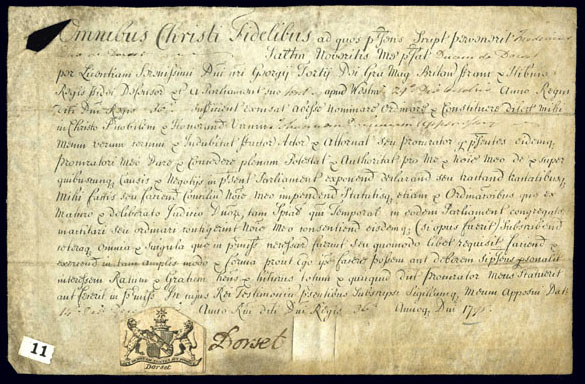 Omnibus Christi Fidelibus ad quos p'sens Script pervenerit
Salt'm Noveritis Me p'fat Ducem de Dorset
per Licentiam Serenissimi Dni nri Georgij Tertij Dei Gra Mag Britan Franc & Hibnie
Regis Fidei Defensor & A Parliament suo apud Westm Anno Regni
dicti Dni Regis sufficient excusat adesse Nominare Ordinare & Constituere Dilect Mihi
in Christo p'nobilem & Honorand Virum
Meum verum certum & Indubitat factor Actor & Attornat seu Procurator p p'sentes eidemq
Procuratori Meo Dare & Concedere plenam Potestat & Authoritat pro Me & Noie Meo de & super
quibuscunq Causis & Negotijs in p'sent Parliament exponend declarand seu tractand tractatibusq
Mihi factis seu faciend Consiliu Noie Meo impendend Statutisq etiam & Ordinationibus que ex
Maturo & deliberato Judicio Dnorq tam Spiral quam Temporal in eodem Parliament congregat
inactitari seu ordinari contigerint Noie Meo consentiend eisdemq Si opus fuerit Subscribend
ceteraq Omnia & Singula que in p'miss necessar fuerint seu quomodo libet requisit faciend &
exercend in tam amplis modo & forma prout Ego ipse facere possem aut deberem si p'sens p'sonalit
interessem Ratum & Gratum Habens & Habiturus totum & quicquid dict Procurator Meus Statuerit
aut fecerit in p'miss In cujus Rei Testimoniu p'sentibus Subscripsi Sigillumq Meum Apposui Dat
Anno Rni dicti Dni Regis 36 Annoq Dni 179
11
Dorset
Dorset